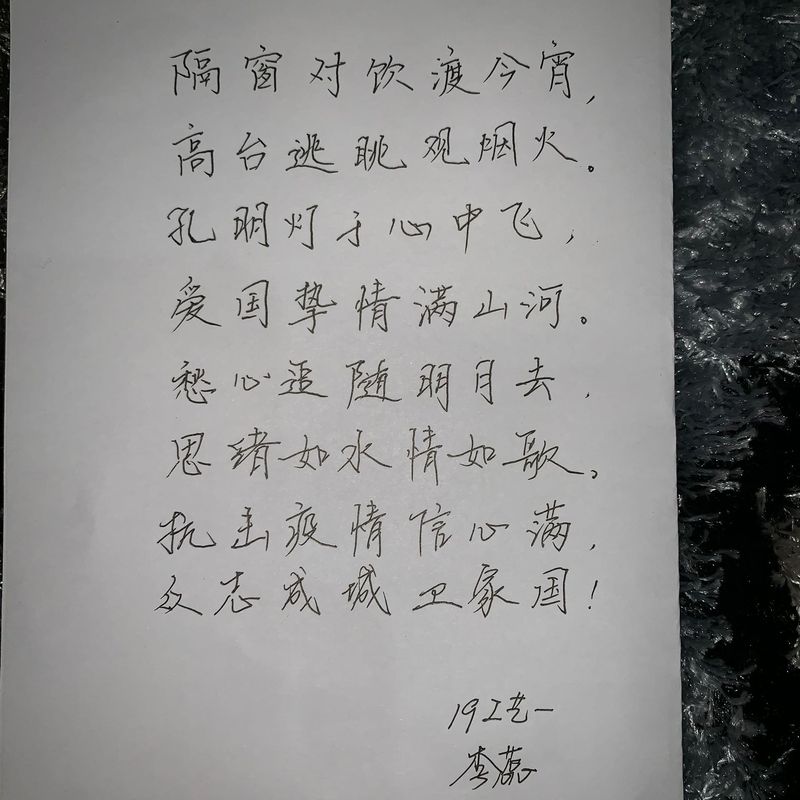 隔窗对饮渡今宵,
高台逃眺观烟火。
孔明灯于心中飞,
爱国挚情满山河。
愁心逐随明月去,
思绪如水情如歌。
抗击疫情信心满,
众志成城卫家国!
19工艺一
李蕊